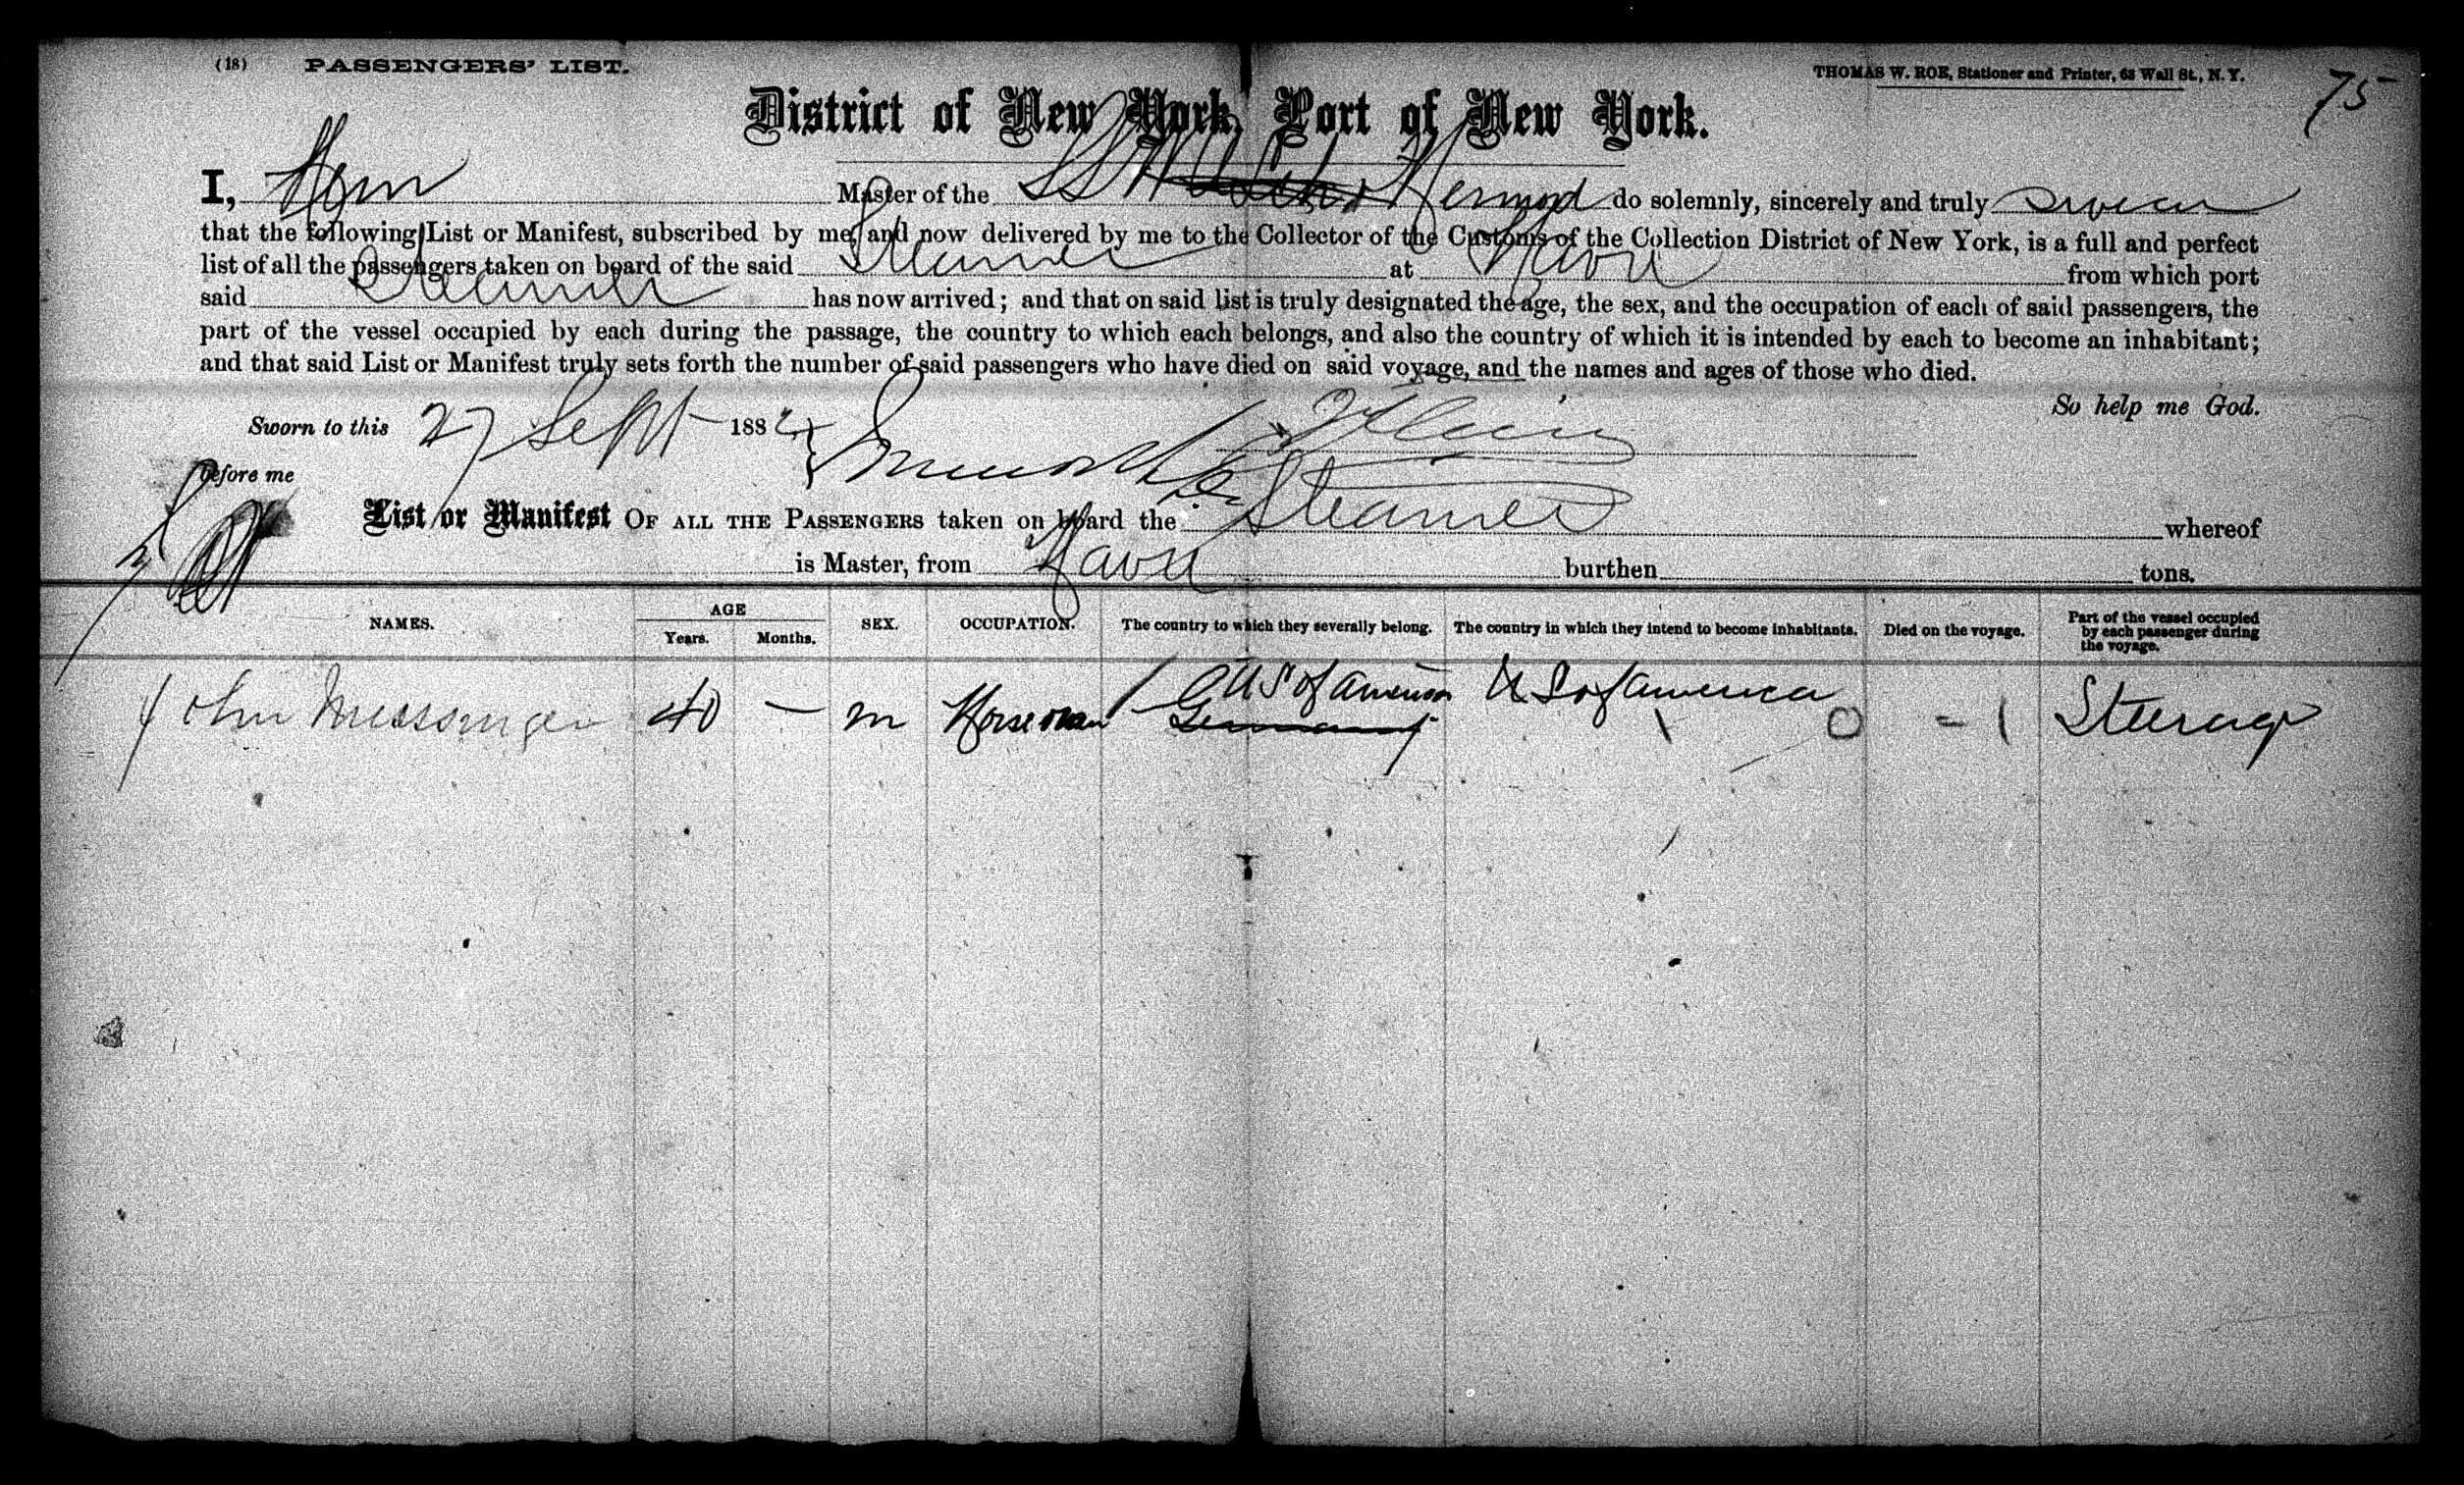 (18) PASSENGERS' LIST.
THOMAS W. ROE, Stationer and Printer, 63 Wall St., N. Y.
75
District of New York, Port of New York.
I, Master of the SS Hermod do solemnly, sincerely and truly swear
that the following List or Manifest, subscribed by me, and now delivered by me to the Collector of the Customs of the Collection District of New York, is a full and perfect
list of all the passengers taken on board of the said Steamer at Havre from which port
said Steamer has now arrived; and that on said list is truly designated the age, the sex, and the occupation of each of said passengers, the
part of the vessel occupied by each during the passage, the country to which each belongs, and also the country of which it is intended by each to become an inhabitant;
and that said List or Manifest truly sets forth the number of said passengers who have died on said voyage, and the names and ages of those who died.
So help me God.
Sworn to this 27 Sept 1882
before me
List or Manifest OF ALL THE PASSENGERS taken on board the Steamer whereof
is Master, from Havre burthen tons.
NAMES. AGE Years. Months. SEX. OCCUPATION. The country to which they severally belong. The country in which they intend to become inhabitants. Died on the voyage. Part of the vessel occupied by each passenger during the voyage.
John Messenger 40 — m Horseman U S of America Germany U S of America Steerage